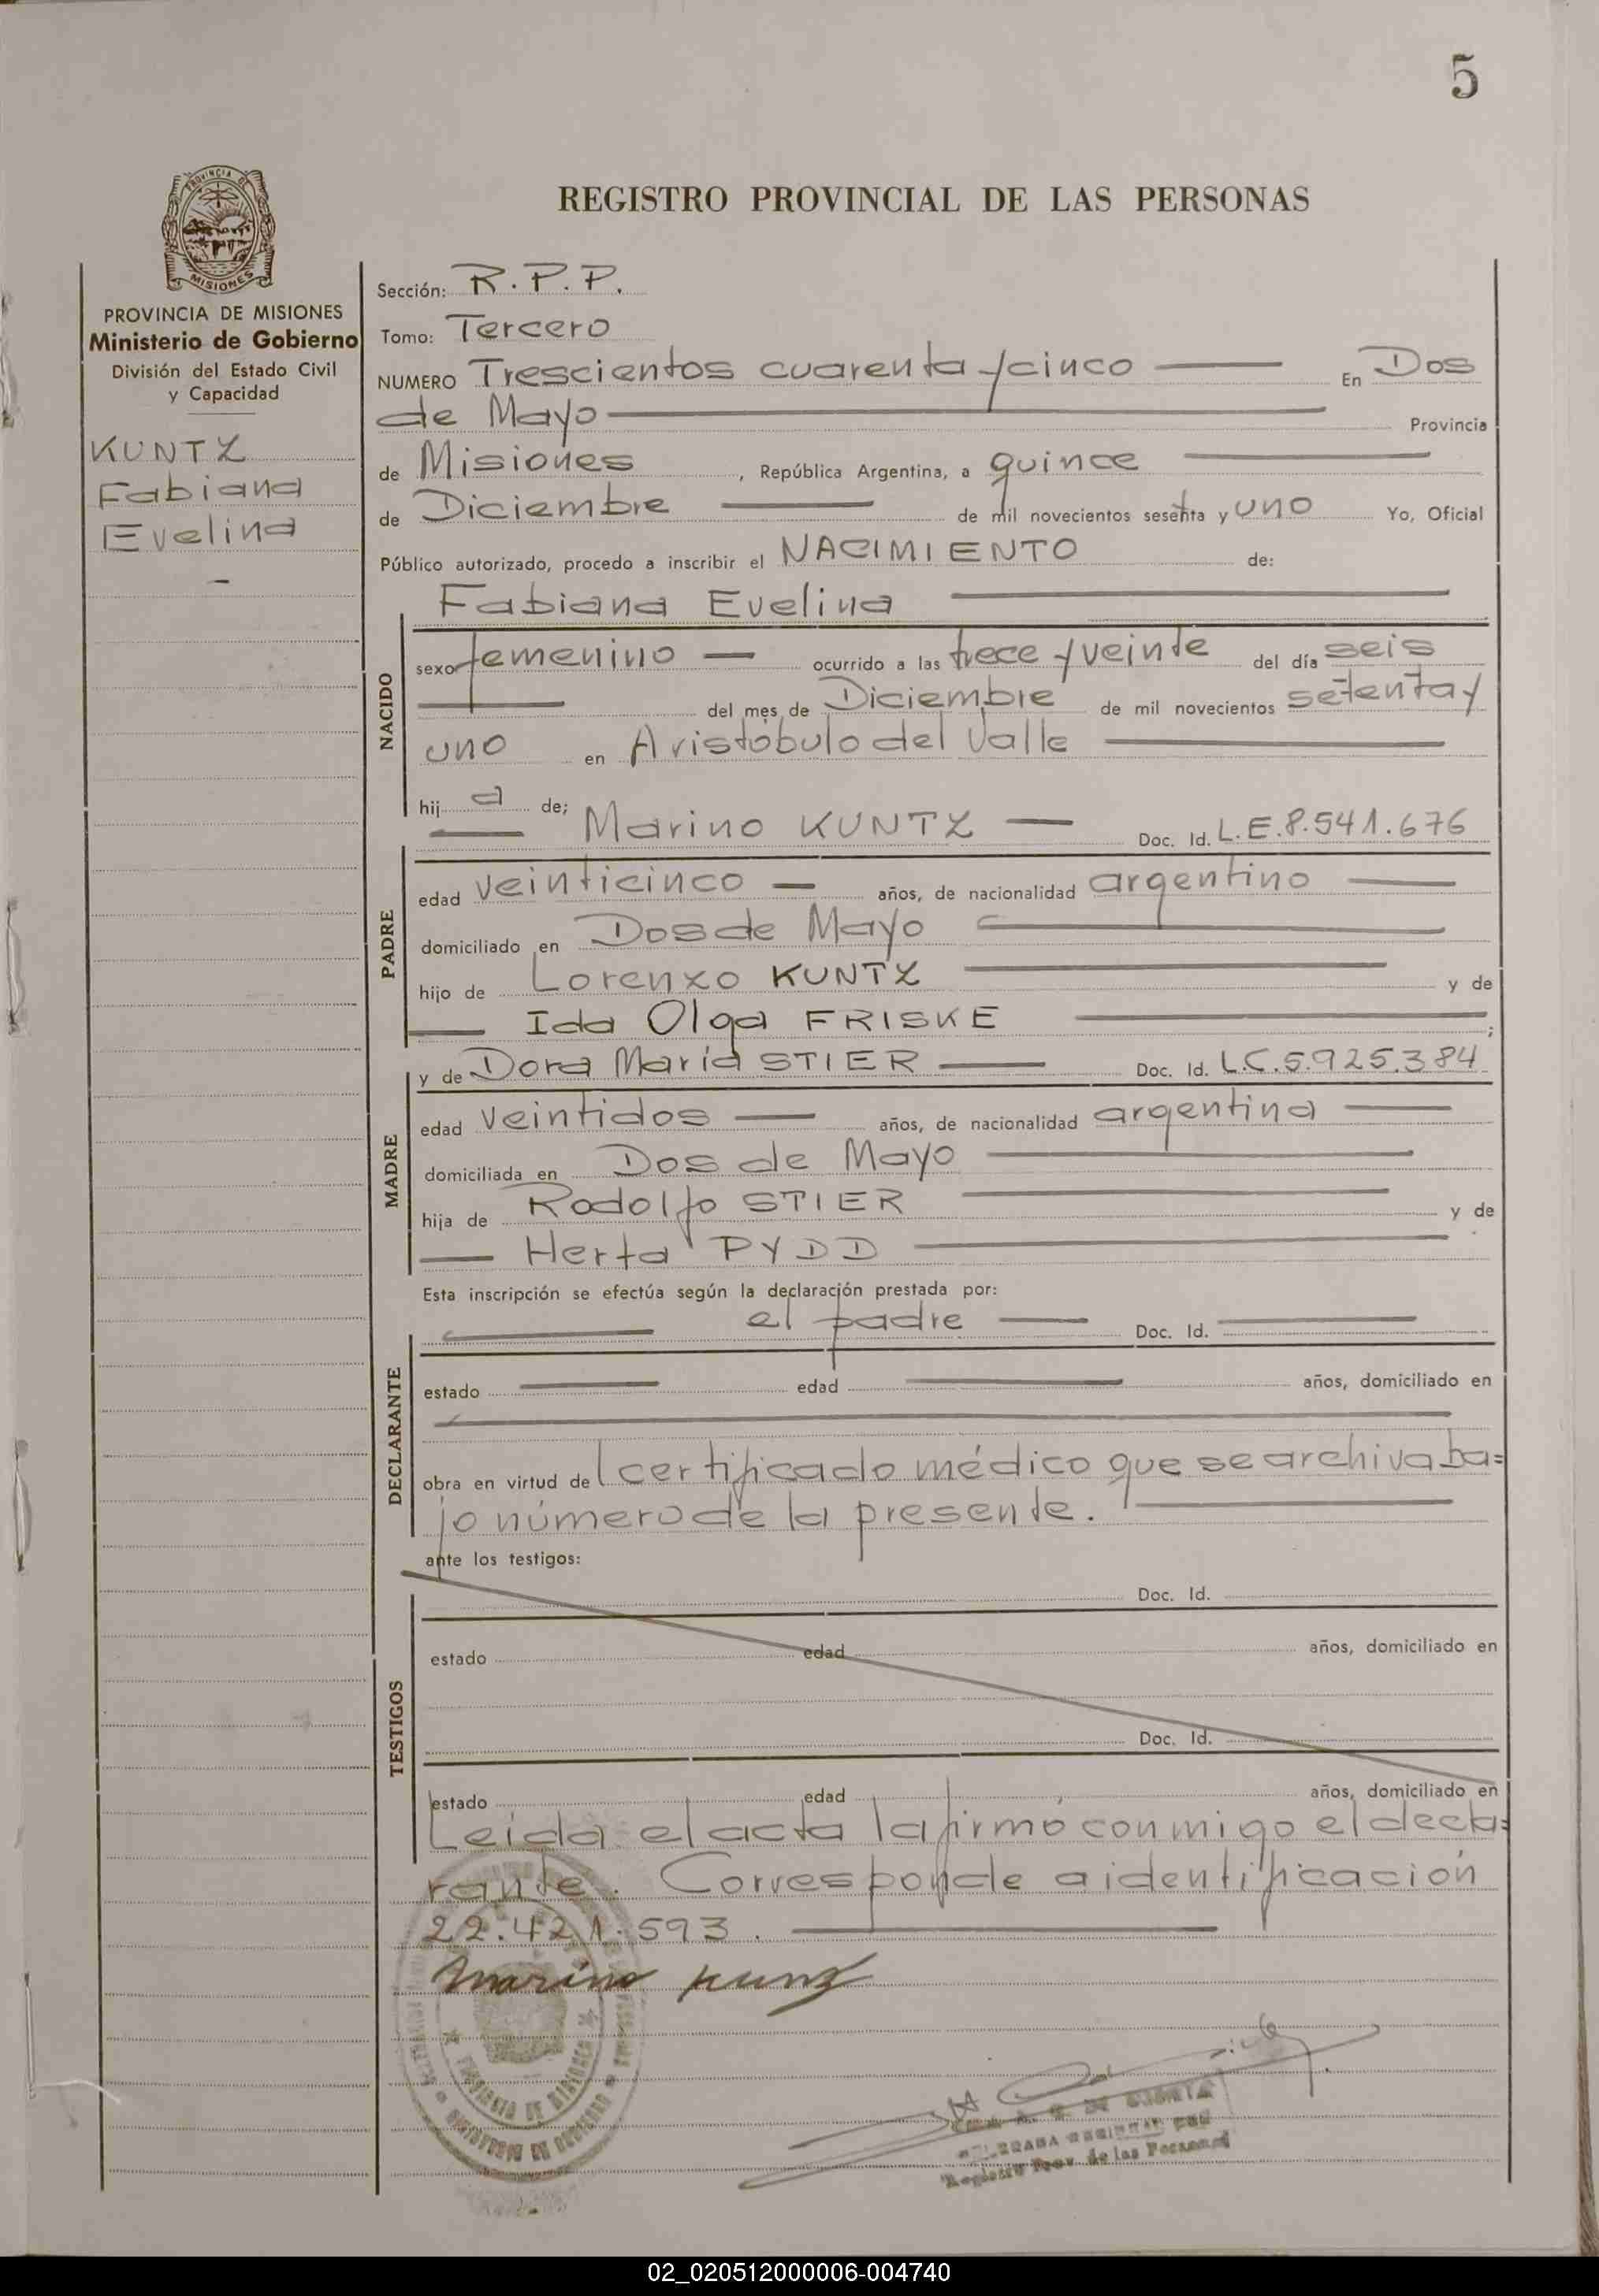 5
PROVINCIA DE
MISIONES
REGISTRO PROVINCIAL DE LAS PERSONAS
PROVINCIA DE MISIONES
Ministerio de Gobierno
División del Estado Civil
y Capacidad
KUNTZ
Fabiana
Evelina
Sección: R.P.P.
Tomo: Tercero
NUMERO Trescientos cuarenta y cinco En Dos
de Mayo Provincia
de Misiones, República Argentina, a quince
de Diciembre de mil novecientos sesenta y uno Yo, Oficial
Público autorizado, procedo a inscribir el NACIMIENTO de:
Fabiana Evelina
NACIDO
sexo femenino ocurrido a las trece y veinte del día seis
del mes de Diciembre de mil novecientos setenta y
uno en Aristobulo del Valle
hij a de; Marino KUNTZ Doc. Id. L.E.8.541.676
PADRE
edad veinticinco años, de nacionalidad argentino
domiciliado en Dos de Mayo
hijo de Lorenzo KUNTZ y de
Ida Olga FRISKE ;
y de Dora María STIER Doc. Id. L.C.5.925.384
MADRE
edad veintidos años, de nacionalidad argentina
domiciliada en Dos de Mayo
hija de Rodolfo STIER y de
Herta PYDD
Esta inscripción se efectúa según la declaración prestada por:
el padre Doc. Id.
DECLARANTE
estado edad años, domiciliado en
obra en virtud del certificado médico que se archiva ba=
jo número de la presente.
ante los testigos:
Doc. Id.
TESTIGOS
estado edad años, domiciliado en
Doc. Id.
estado edad años, domiciliado en
Leída el acta la firmó conmigo el decla=
rante. Corresponde a identificación
22.421.593.
Marino Kunz
Registro Prov. de las Personas
02_020512000006-004740